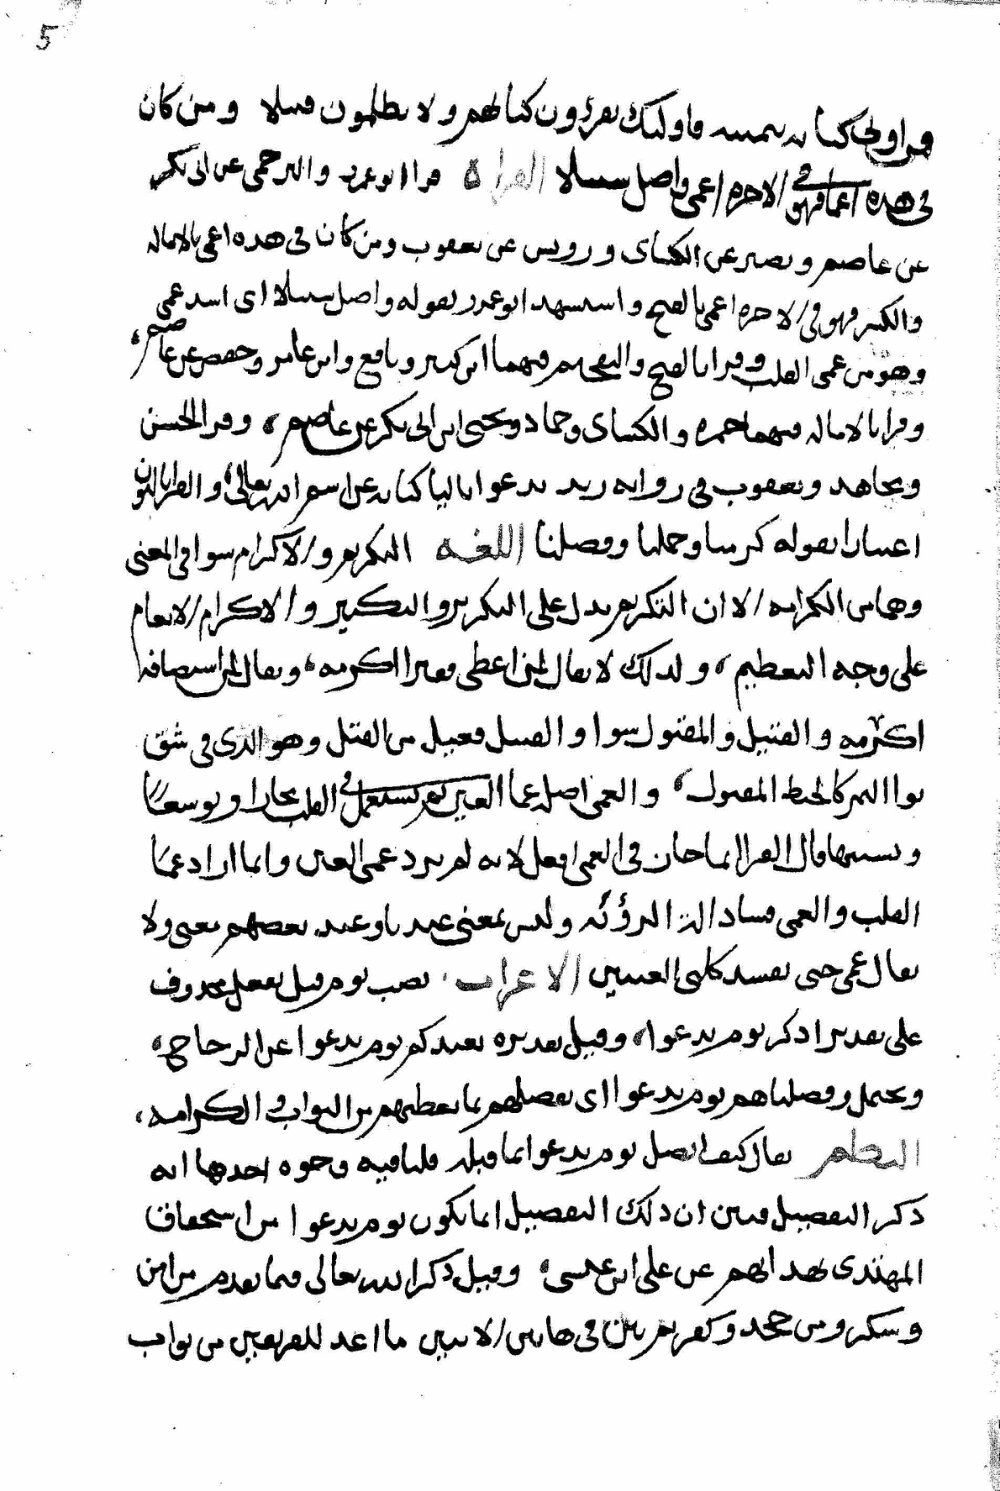 5
فمن اوتي كتابه بيمينه فاولئك يقرؤون كتابهم ولا يظلمون فتيلا ومن كان
في هذه اعمى فهو في الاخرة اعمى واضل سبيلا القراة قرا ابو عمرو والبرجمي عن ابي بكر
عن عاصم ونصير عن الكسائي ورويس عن يعقوب ومن كان في هذه اعمى بالاماله
والكسر فهو في الاخرة اعمى بالفتح واستشهد ابو عمرو بقوله واضل سبيلا اي اشد عمى
وهو من عمى القلب وقرا بالفتح والتفخيم فيهما ابن كثير ونافع وابن عامر وحفص عن عاصم
وقرا بالاماله فيهما حمزه والكسائي وحماد ويحيى ابن ابي بكر عن عاصم وقرا الحسن
ومجاهد ويعقوب في روايه زيد يدعوا باليا كنايه عن اسم الله تعالى والقرا بالنون
اعتبارا بقوله كرمنا وحملنا وفضلنا اللغه التكريم والاكرام سوا في المعنى
وهما من الكرامه الا ان التكريم يدل على التكرير والتكثير والاكرام الانعام
على وجه التعظيم ولذلك لا يقال لمن اعطى فقيرا اكرمه ويقال لمن استضافه
اكرمه والفتيل والمفتول سوا والفتيل فعيل من الفتل وهو الذي في شق
نوا التمر كالخيط المفتول والعمى اصله عما العين ثم يستعمل في القلب مجازا وتوسعا
وتشبيها قال الفرا انما جاز في العمى افعل لانه لم يرد عمى العين وانما اراد عما
القلب والعمى فساد الة الرؤية وليس بمعنى عند ناوعند بعضهم معنى ولا
يقال عمى حتى يفسد كلتي العينين الاعراب نصب يوم قيل بفعل محذوف
على تقدير اذكر يوم يدعوا وقيل تقديره نعيدكم يوم يدعوا عن الزجاج
ويحتمل وفضلناهم يوم يدعوا اي نفضلهم بما نعطيهم من الثواب والكرامه
النظم يقال كيف اتصل يوم يدعوا بما قبله قلنا فيه وجوه احدها انه
ذكر التفضيل فبين ان ذلك التفضيل انما يكون يوم يدعوا من استحقاق
المهتدي بهداهم عن علي ابن عيسى وقيل ذكر الله تعالى فيما تقدم من امن
وشكر ومن جحد وكفر ثم بين في هاتين الايتين ما اعد للفريقين من ثواب